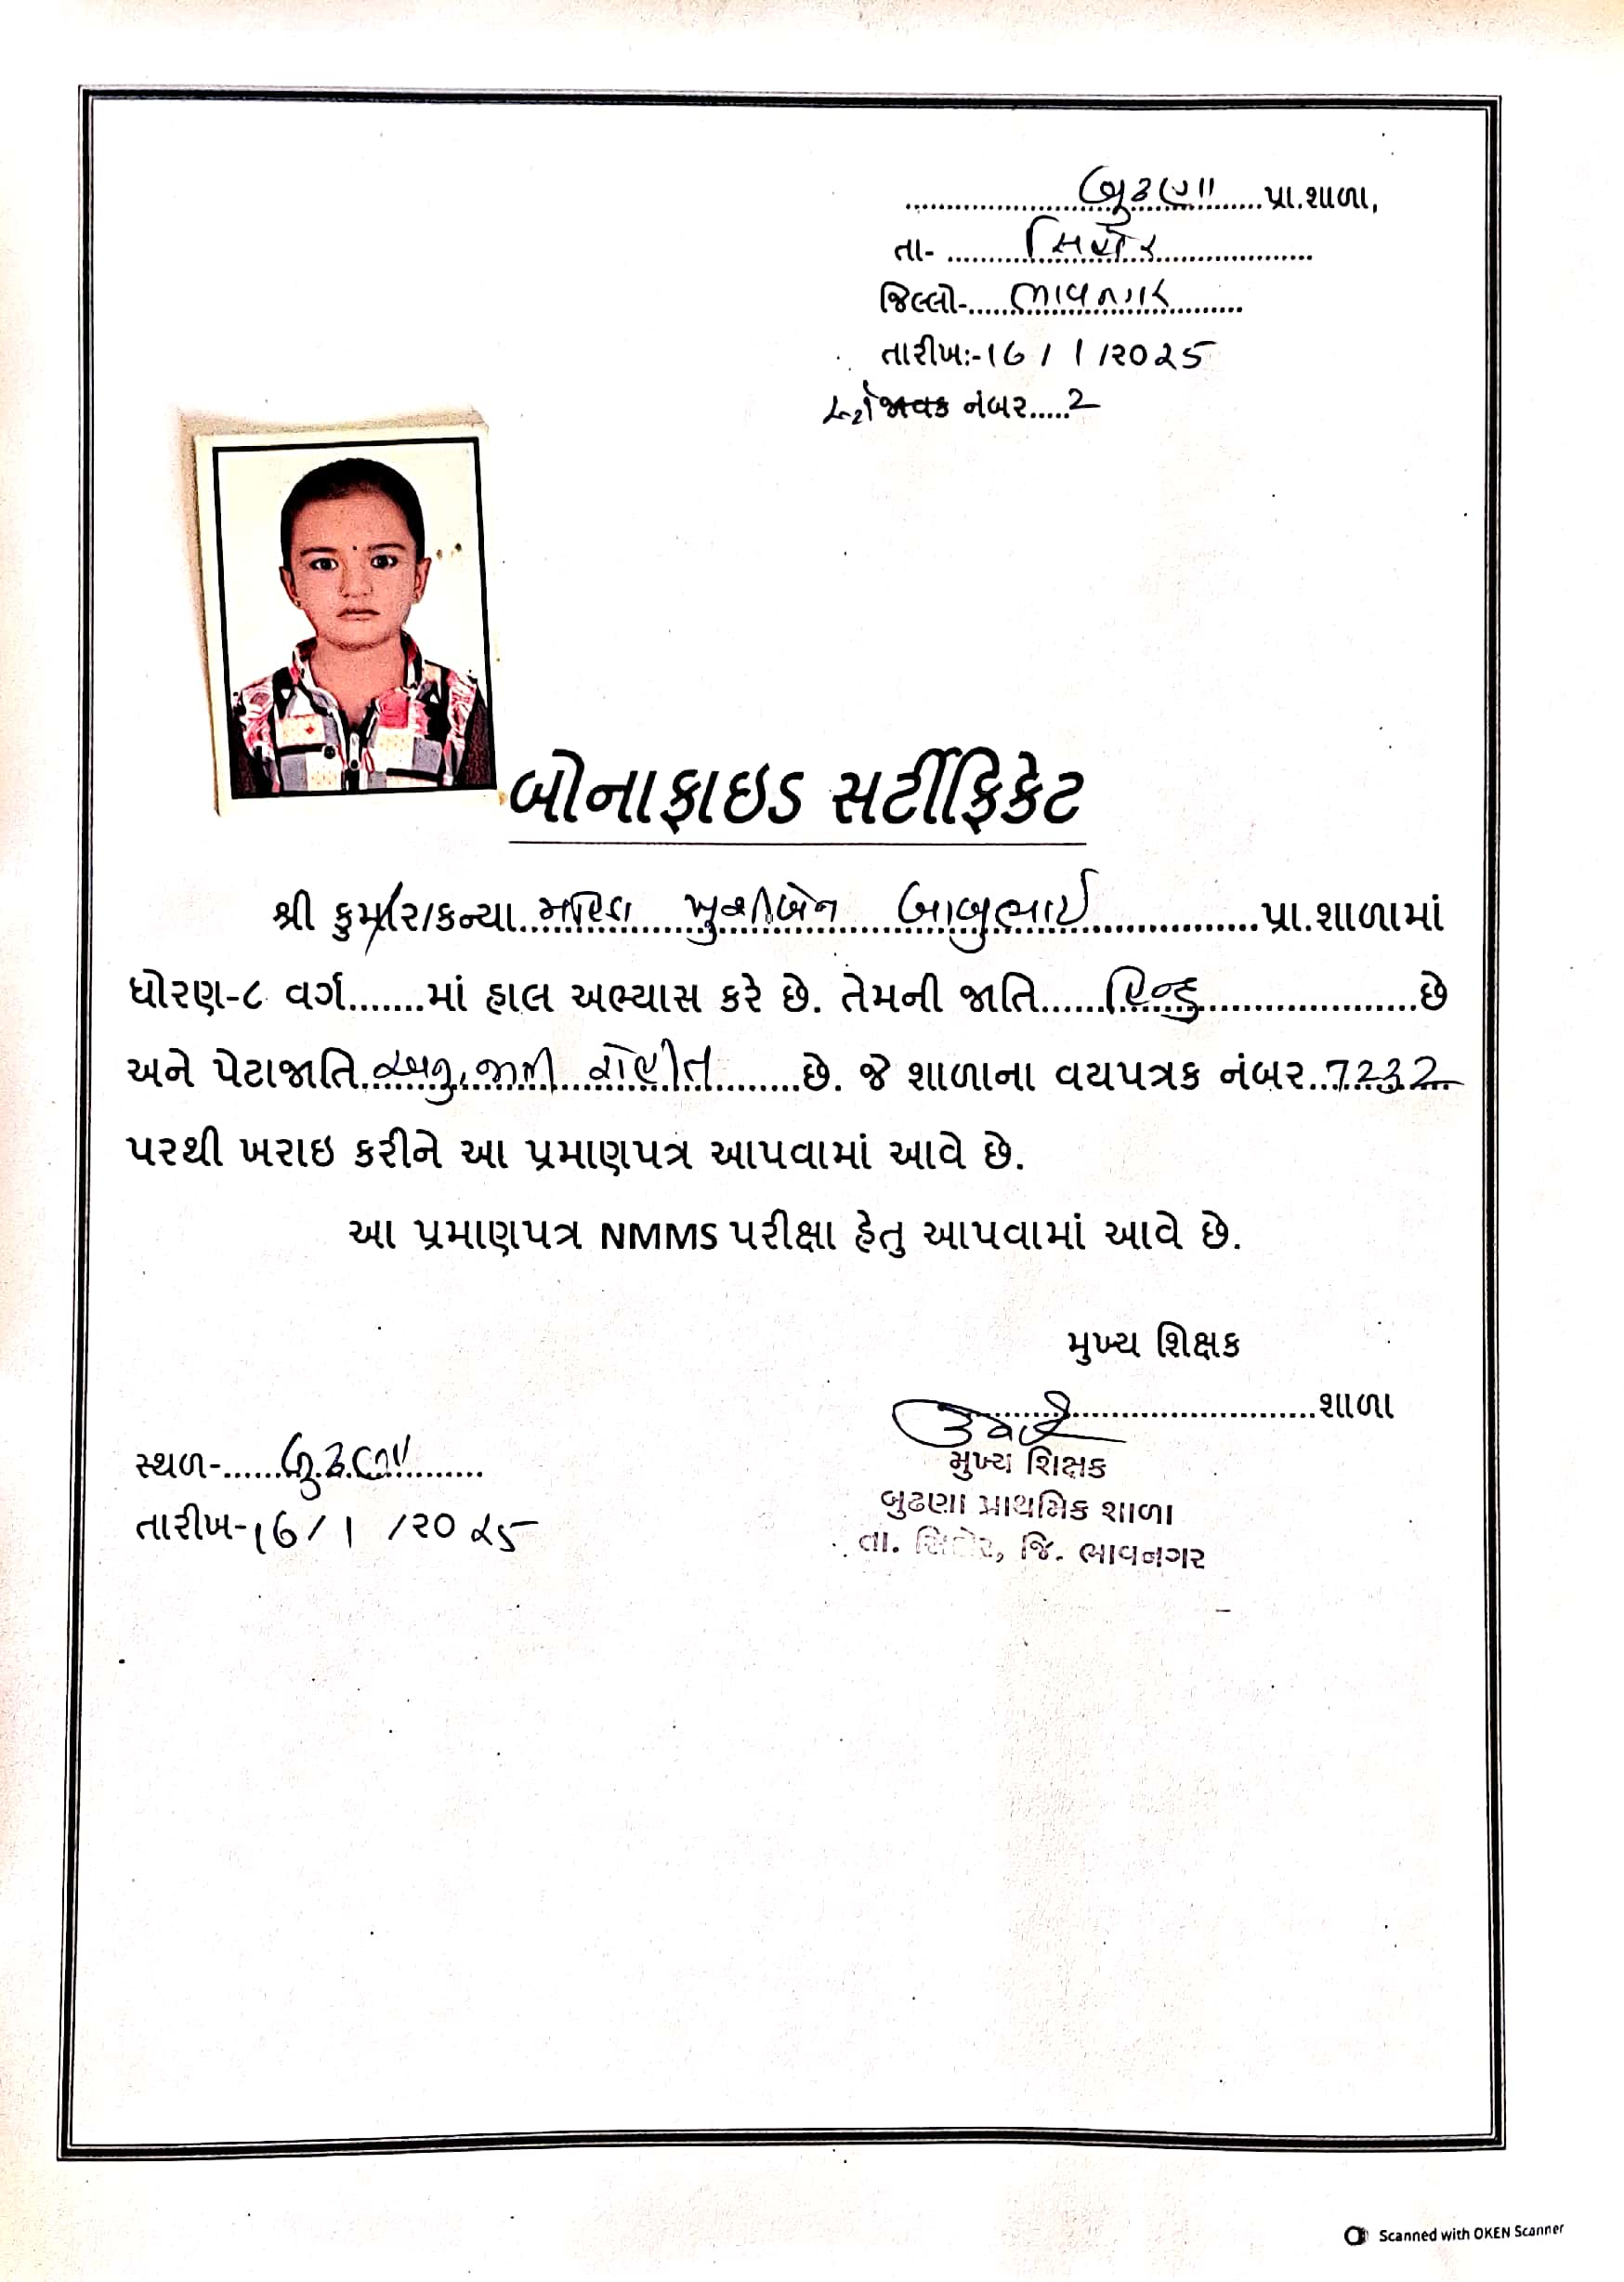 બુઢણા પ્રા.શાળા,
તા- સિહોર
જિલ્લો- ભાવનગર
તારીખ:-૧૭ / ૧ /૨૦૨૫
જાવક નંબર.....2
બોનાફાઇડ સર્ટીફિકેટ
શ્રી કુમાર/કન્યા ખુશીબેન બાબુભાઈ પ્રા.શાળામાં
ધોરણ-૮ વર્ગ.......માં હાલ અભ્યાસ કરે છે. તેમની જાતિ હિન્દુ છે
અને પેટાજાતિ અનુ.જાતિ રોહીત છે. જે શાળાના વયપત્રક નંબર 7232
પરથી ખરાઇ કરીને આ પ્રમાણપત્ર આપવામાં આવે છે.
આ પ્રમાણપત્ર NMMS પરીક્ષા હેતુ આપવામાં આવે છે.
મુખ્ય શિક્ષક
શાળા
મુખ્ય શિક્ષક
બુઢણા પ્રાથમિક શાળા
તા. સિહોર, જિ. ભાવનગર
સ્થળ- બુઢણા
તારીખ-૧૭/ ૧ /૨૦૨૫
Scanned with OKEN Scanner